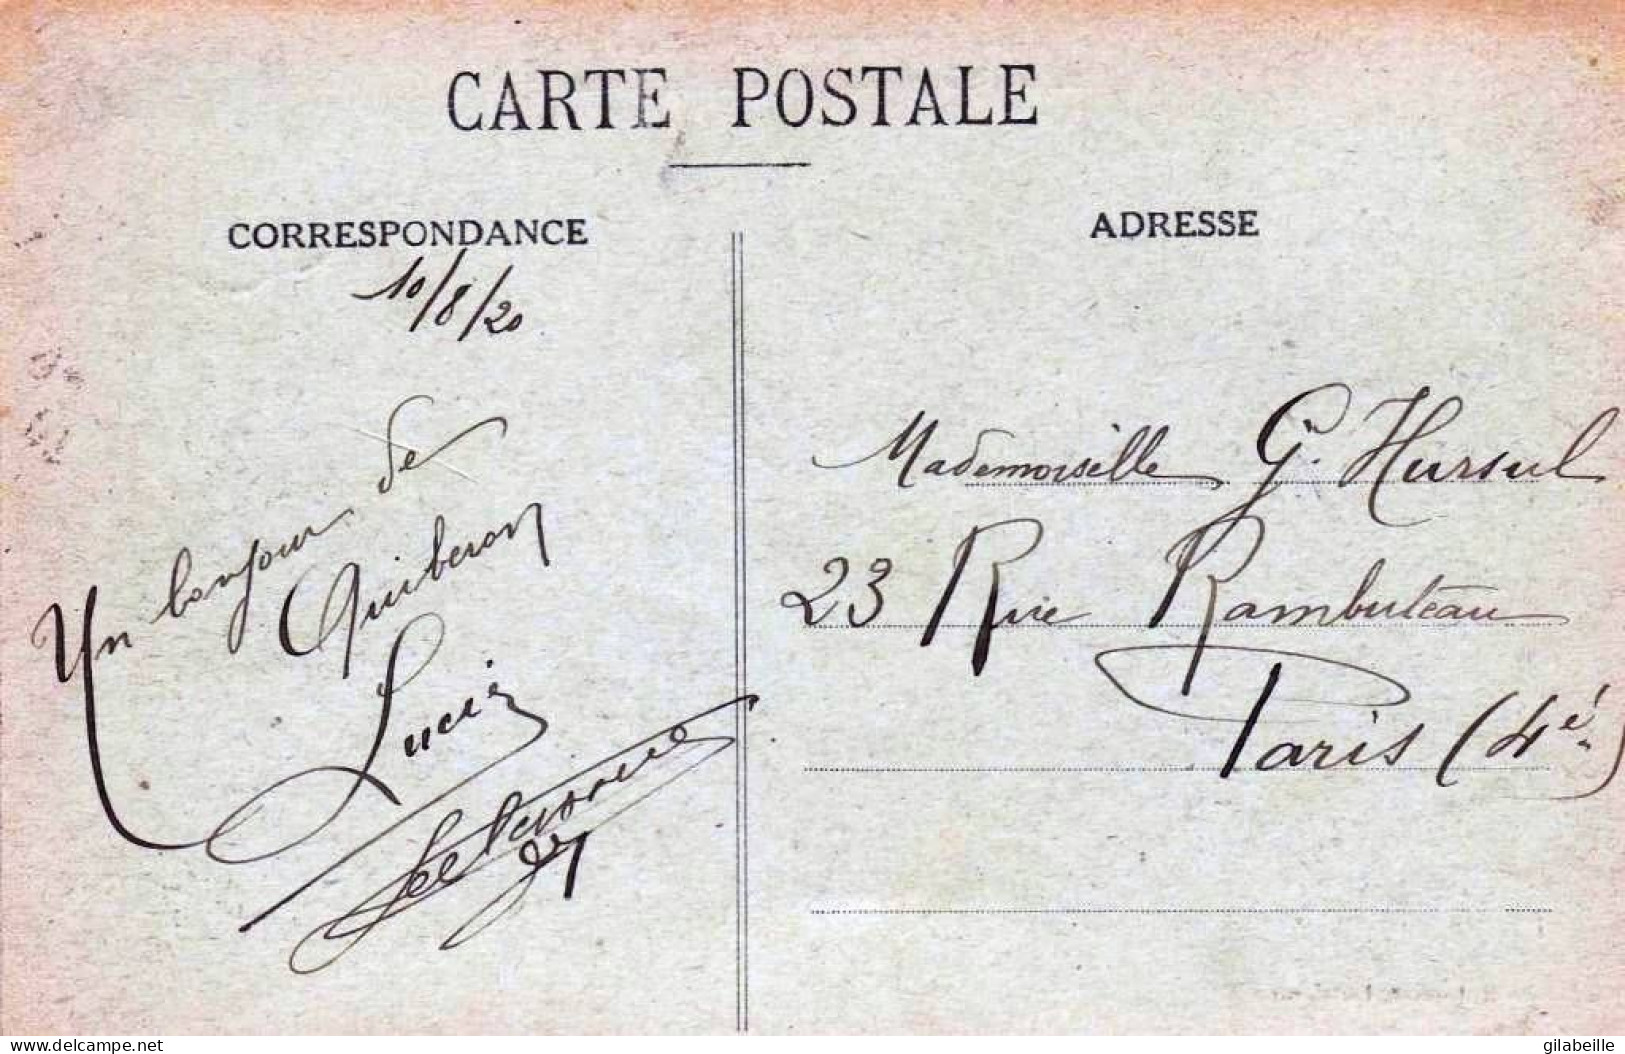 CARTE POSTALE
CORRESPONDANCE
10/8/20
Un bonjour de
Quiberon
Lucie
ADRESSE
Mademoiselle G. Hursul
23 Rue Rambuteau
Paris (4è)
www.delcampe.net
gilabeille